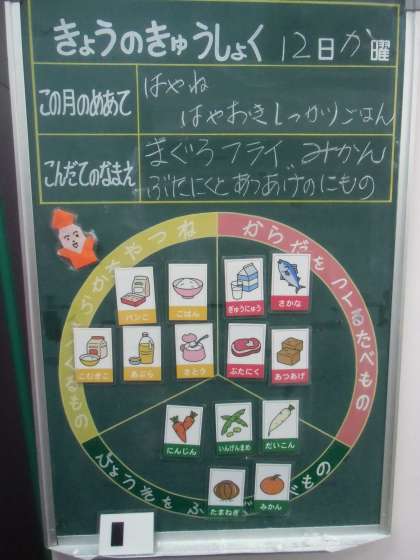 きょうのきゅうしょく 12日か曜
この月のめあて
はやね
はやおきしっかりごはん
こんだてのなまえ
まぐろフライ みかん
ぶたにくとあつあげのにもの
からだをつくるたべもの
パンこ
ごはん
ぎゅうにゅう
さかな
こむぎこ
あぶら
さとう
ぶたにく
あつあげ
にんじん
いんげんまめ
だいこん
たまねぎ
みかん